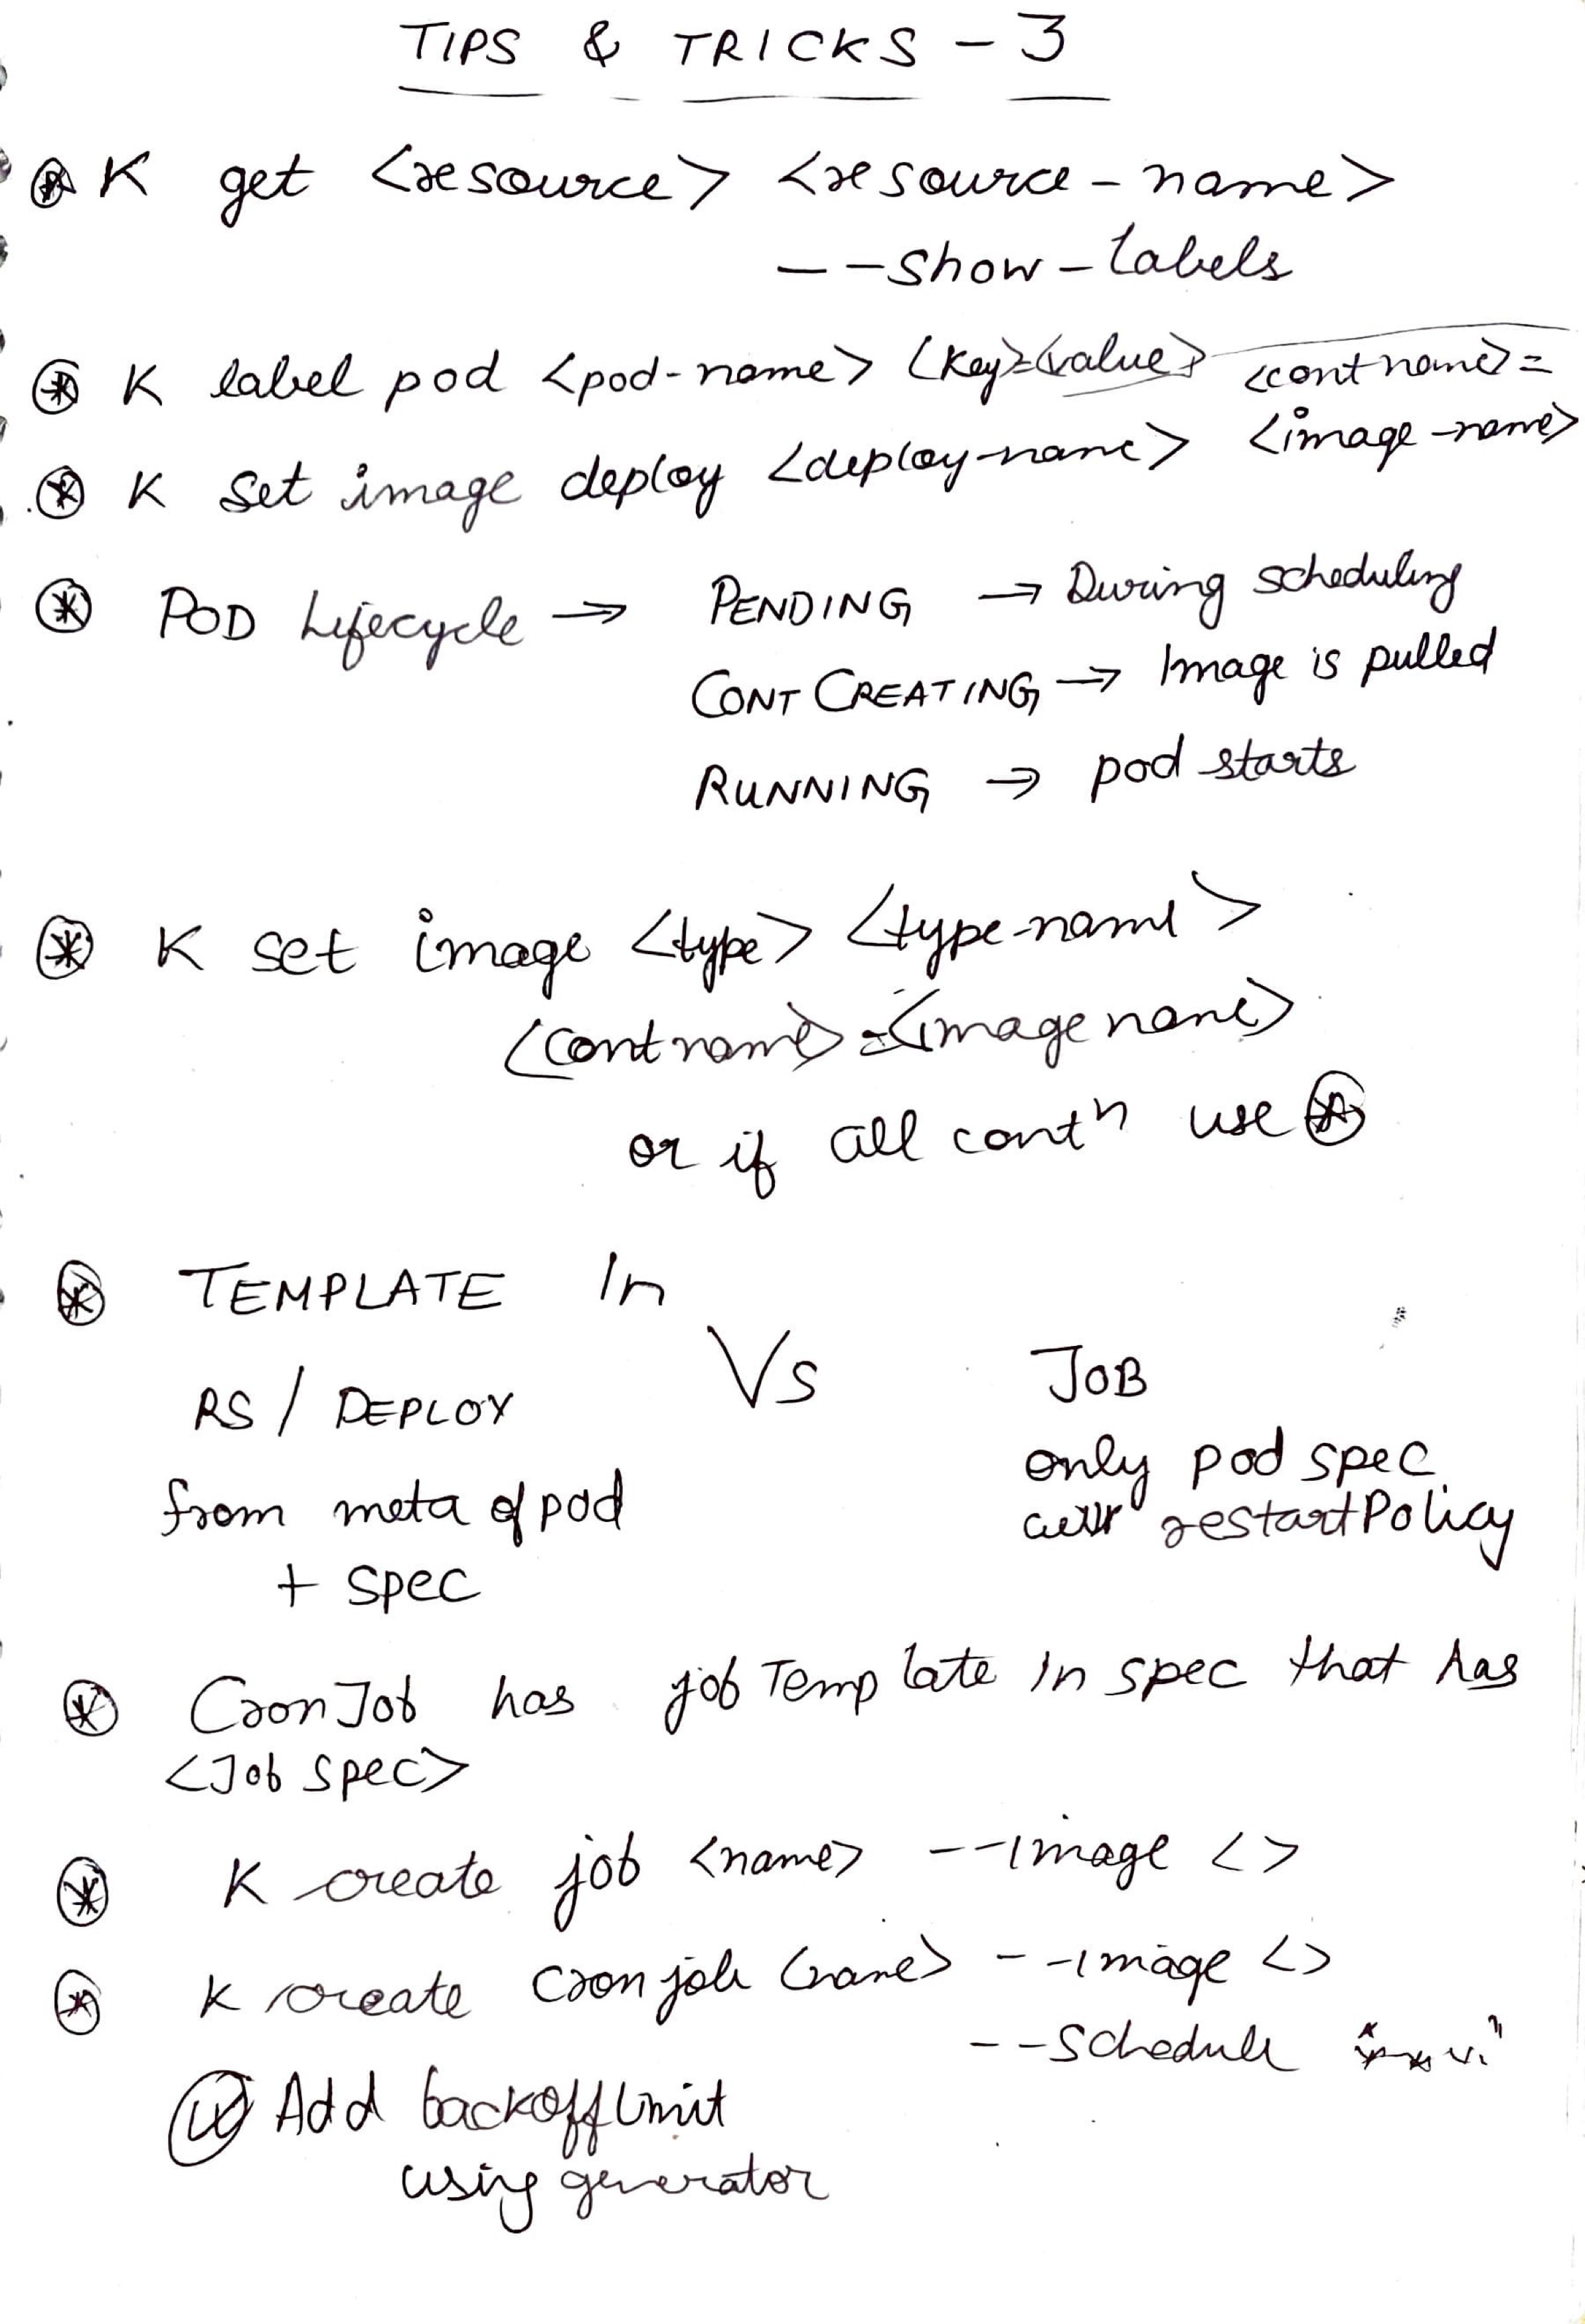 TIPS & TRICKS - 3
⊛ K get <resource> <resource-name>
--show-labels
⊛ K label pod <pod-name> <key>=<value>
⊛ K set image deploy <deploy-name> <cont name>=
<image-name>
⊛ POD Lifecycle → PENDING → During scheduling
CONT CREATING → Image is pulled
RUNNING → pod starts
⊛ K set image <type> <type-name>
<cont name>=<image name>
or if all contn use ⊛
⊛ TEMPLATE In
Vs
RS / DEPLOY
JOB
from meta of pod
+ spec
only pod spec
restartPolicy
⊛ CronJob has jobTemplate in spec that has
<Job spec>
⊛ K create job <name> --image <>
⊛ K create cronjob <name> --image <>
--schedule
Add backoffLimit
using generator